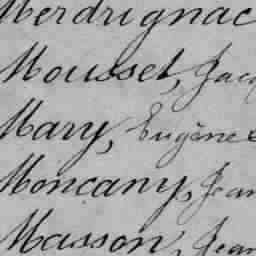 Merdrignac
Mousset, Jacq
Mary, Eugène
Moncany, Jean
Masson, Jean